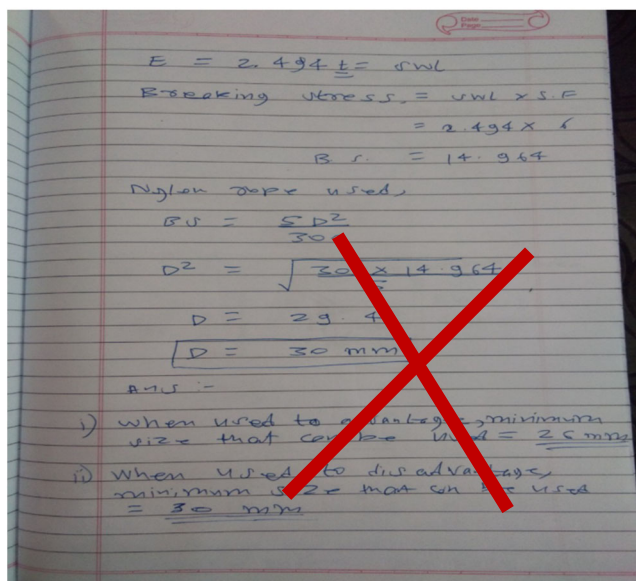 Date
Page
E = 2.494 t = SWL
Breaking stress. = SWL x S.F
= 2.494 x 6
B. S. = 14.964
Nylon rope used,
BS = 5 D²
30
D² = √ 30 x 14.964
5
D = 29.4
D = 30 mm
Ans :-
i) when used to advantage, minimum
size that can be used = 26 mm
ii) when used to disadvantage,
minimum size that can be used
= 30 mm